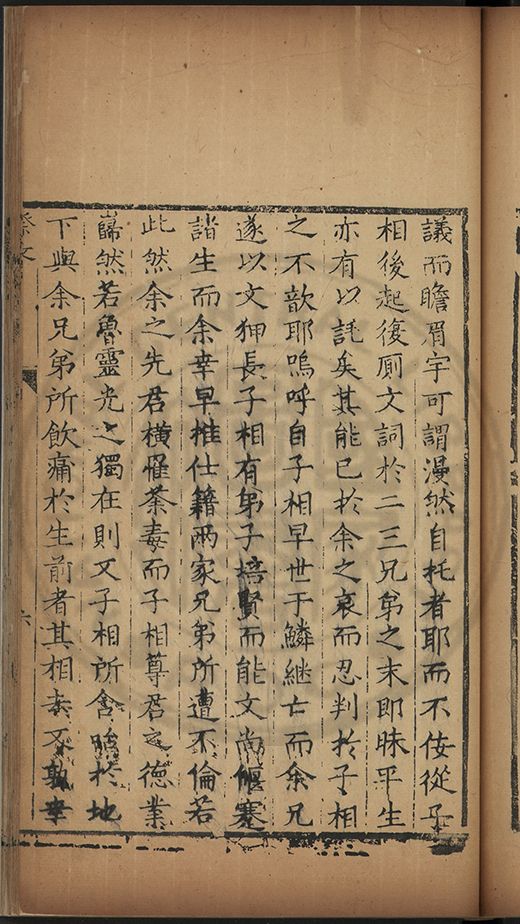 議而瞻眉宇可謂漫然自托者耶而不佞從子
相後起復厠文詞於二三兄弟之末即昧平生
亦有以託矣其能已於余之哀而忍判於子相
之不歆耶嗚呼自子相早世于鱗継亡而余兄
遂以文狎長子相有弟子培賢而能文尚偃蹇
諸生而余幸早推仕籍兩家兄弟所遭不倫若
此然余之先君橫罹荼毒而子相尊君之德業
巋然若魯靈光之獨在則又子相所含於地
下與余兄弟所飲痛於生前者其相去不孰幸
祭文
六